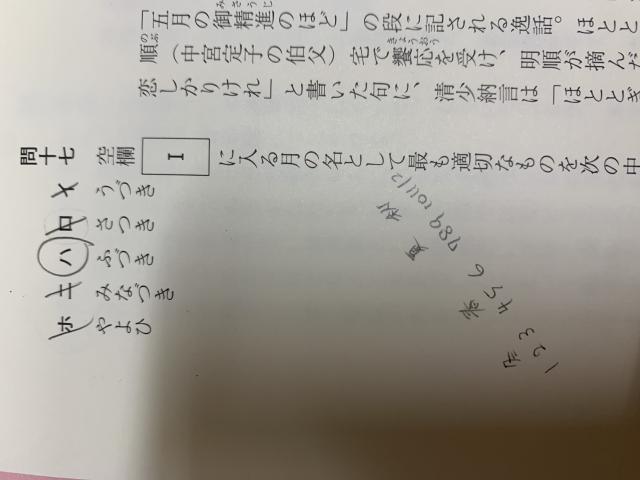 「五月の御精進のほど」の段に記される逸話。ほとと
みさうじ
順（中宮定子の伯父）宅で饗応を受け、明順が摘んだ
のぶ
きょうおう
恋しかりけれ」と書いた句に、清少納言は「ほととぎ
問十七 空欄 I に入る月の名として最も適切なものを次の中
イ うづき
ロ さつき
ハ ふづき
ニ みなづき
ホ やよひ
冬 春 夏 秋
1 2 3 4 5 6 7 8 9 10 11 12